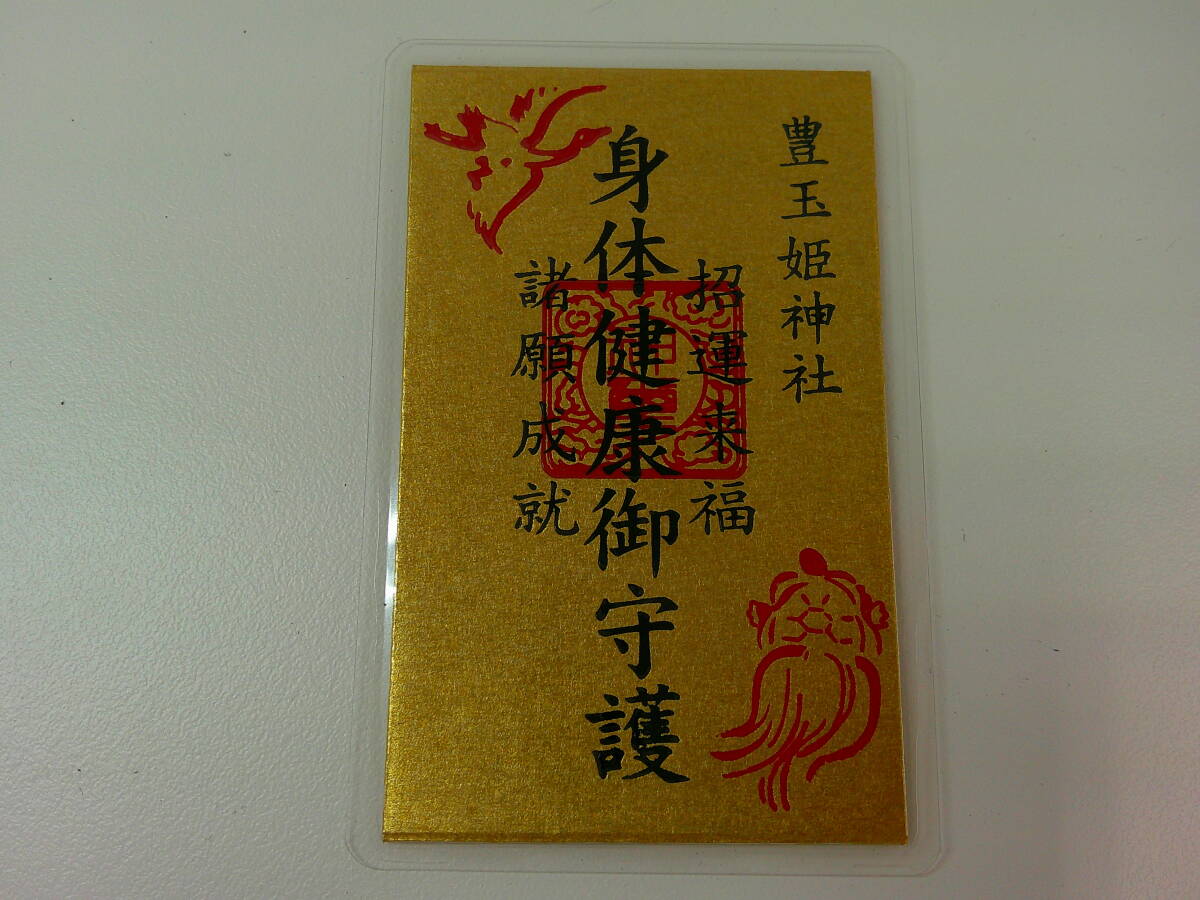 豊玉姫神社
招運来福
身体健康御守護
諸願成就